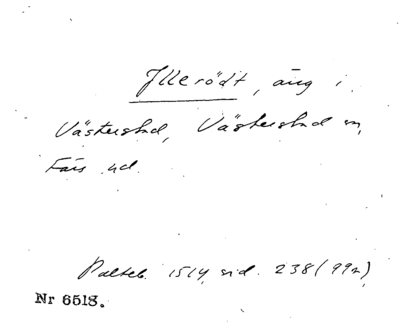 Illerödt, äng i
Västerstad, Västerstad sn,
Färs hd.
Palteb. 1514, sid. 238 (99r)
Nr 6518.